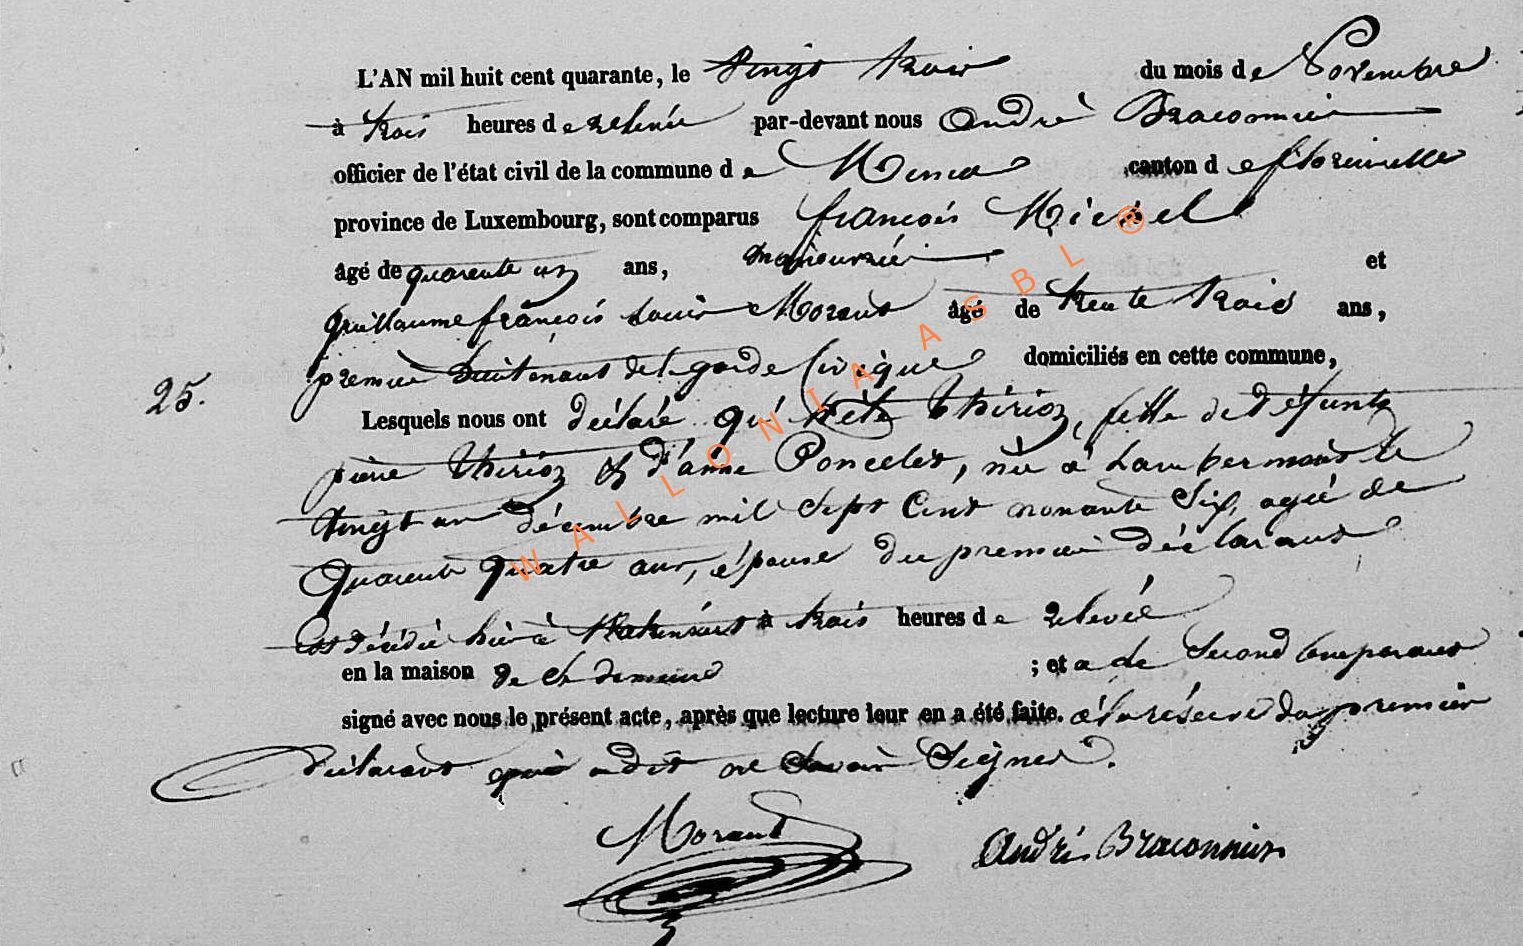 L'AN mil huit cent quarante, le vingt trois du mois de Novembre
à trois heures de relevée par-devant nous André Braconnier
officier de l'état civil de la commune de canton de florenville
province de Luxembourg, sont comparus françois Michel
âgé de quarente un ans, manouvrié et
guillaume françois Louis Morant âgé de trente trois ans,
premié Lieutenant de la garde Civique domiciliés en cette commune,
25.
Lesquels nous ont déclaré qu' Thirion, fille de défunts
pierre Thirion & d'anne Poncelet, née à Lambermont le
vingt un décembre mil Sept Cent nonante Six, agée de
Quarente quatre ans, épouse du premié déclarant
Est décédée hier à à trois heures de relevée
en la maison de Sa demeure ; et a de Second Comparant
signé avec nous le présent acte, après que lecture leur en a été faite. à la réserve du premier
déclarant qui a dit ne Savoir Signer.
Morant André Braconnier
WALLONIA ASBL ®